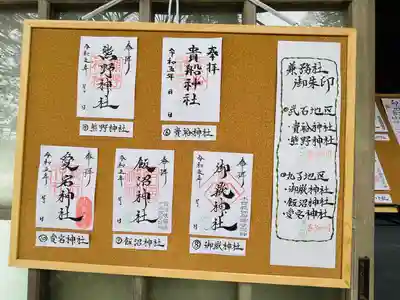 奉拝
熊野神社
令和五年 月 日
熊野神社
奉拝
貴船神社
令和五年 月 日
⑥貴船神社
奉拝
愛宕神社
令和五年 月 日
愛宕神社
奉拝
飯沼神社
令和五年 月 日
飯沼神社
奉拝
御嶽神社
月 日
御嶽神社
兼務社
御朱印
武石地区
・貴船神社
熊野神社
丸子地区
・御嶽神社
・飯沼神社
・愛宕神社